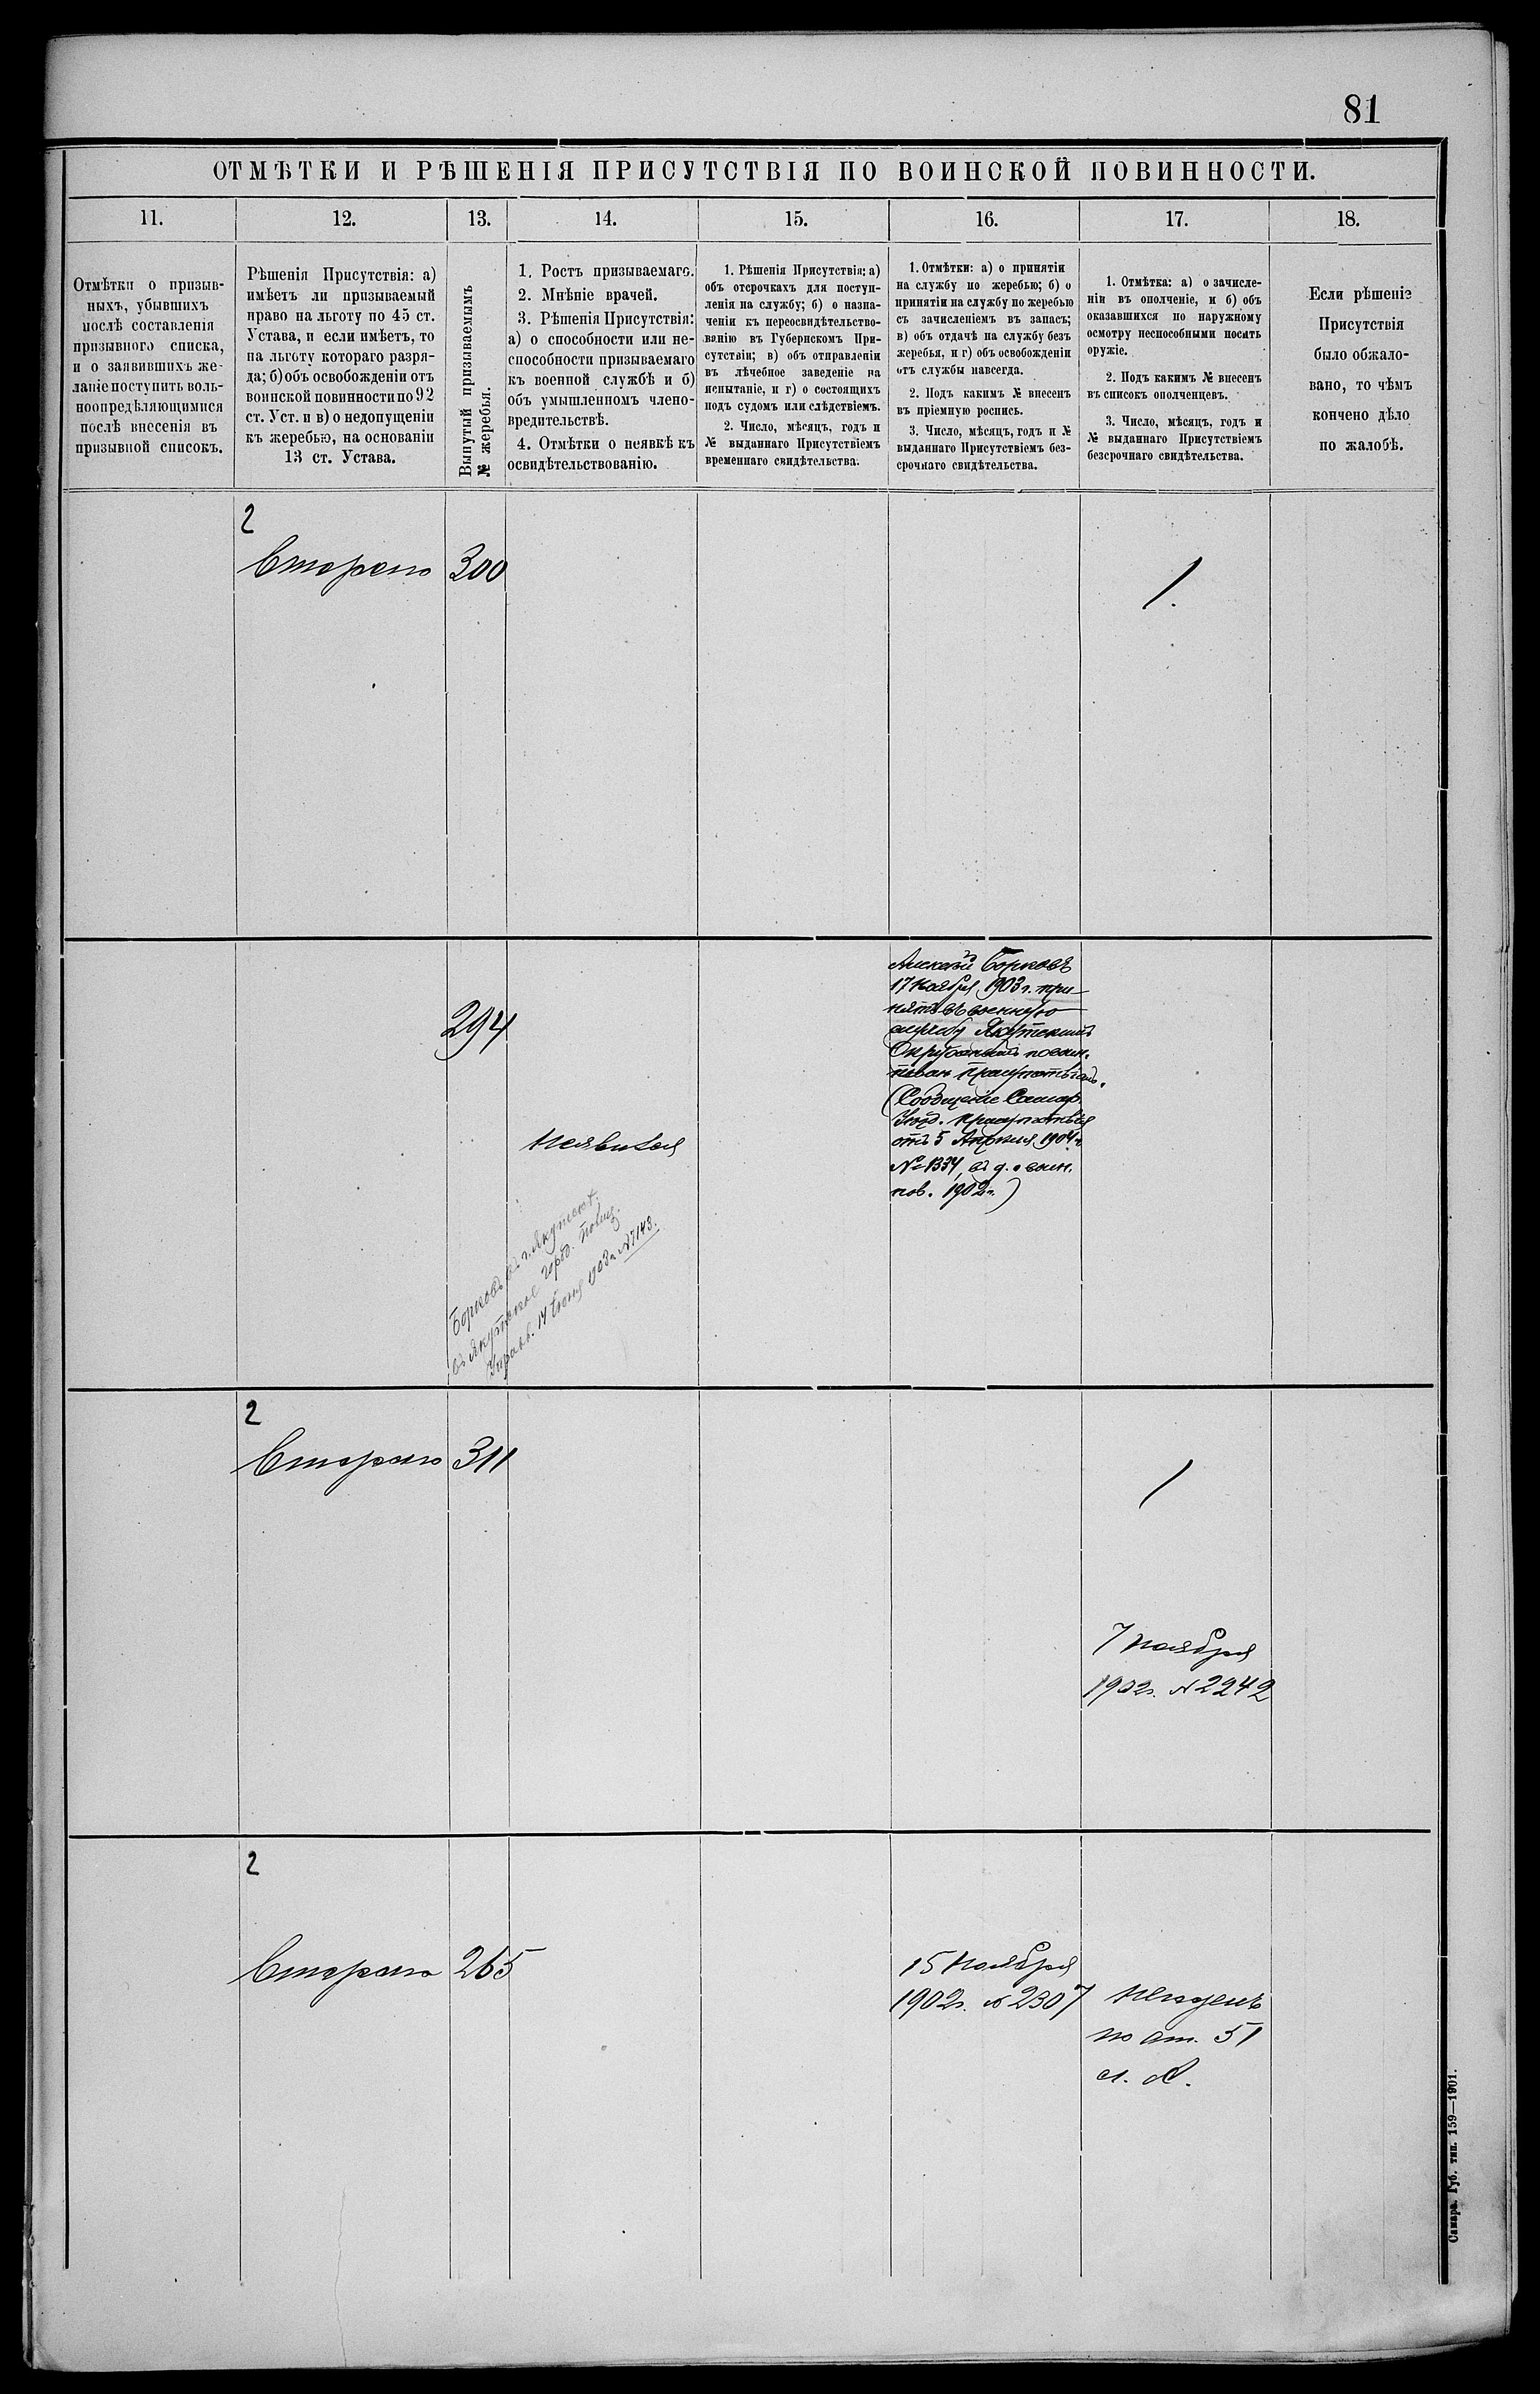 81
ОТМѢТКИ И РѢШЕНІЯ ПРИСУТСТВІЯ ПО ВОИНСКОЙ ПОВИННОСТИ.
11.
12.
13.
14.
15.
16.
17.
18.
Отмѣтки о призыв-
ныхъ, убывшихъ
послѣ составленія
призывного списка,
и о заявившихъ же-
ланіе поступить воль-
ноопредѣляющимися
послѣ внесенія въ
призывной списокъ.
Рѣшенія Присутствія: а)
имѣетъ ли призываемый
право на льготу по 45 ст.
Устава, и если имѣетъ, то
на льготу котораго разря-
да; б) объ освобожденіи отъ
воинской повинности по 92
ст. Уст. и в) о недопущеніи
къ жеребью, на основаніи
13 ст. Устава.
Вынутый призываемымъ
№ жеребья.
1. Ростъ призываемаго.
2. Мнѣніе врачей.
3. Рѣшенія Присутствія:
а) о способности или не-
способности призываемаго
къ военной службѣ и б)
объ умышленномъ члено-
вредительствѣ.
4. Отмѣтки о неявкѣ къ
освидѣтельствованію.
1. Рѣшенія Присутствія: а)
объ отсрочкахъ для поступ-
ленія на службу; б) о назна-
ченіи къ переосвидѣтельство-
ванію въ Губернскомъ При-
сутствіи; в) объ отправленіи
въ лѣчебное заведеніе на
испытаніе, и г) о состоящихъ
подъ судомъ или слѣдствіемъ.
2. Число, мѣсяцъ, годъ и
№ выданнаго Присутствіемъ
временнаго свидѣтельства.
1. Отмѣтки: а) о принятіи
на службу по жеребью; б) о
принятіи на службу по жеребью
съ зачисленіемъ въ запасъ;
в) объ отдачѣ на службу безъ
жеребья, и г) объ освобожденіи
отъ службы навсегда.
2. Подъ какимъ № внесенъ
въ пріемную роспись.
3. Число, мѣсяцъ, годъ и №
выданнаго Присутствіемъ без-
срочнаго свидѣтельства.
1. Отмѣтка: а) о зачисле-
ніи въ ополченіе, и б) объ
оказавшихся по наружному
осмотру неспособными носить
оружіе.
2. Подъ какимъ № внесенъ
въ списокъ ополченцевъ.
3. Число, мѣсяцъ, годъ и
№ выданнаго Присутствіемъ
безсрочнаго свидѣтельства.
Если рѣшеніе
Присутствія
было обжало-
вано, то чѣмъ
кончено дѣло
по жалобѣ.
2
Второго 300
1.
294
Неявился
Борковъ въ г. Якутскѣ.
въ Якутское город. полиц.
Управ. 14 Іюня 1903 г. № 7143.
Алексѣй Борковъ
17 Ноября 1903 г. при-
нятъ въ военную
службу Якутскимъ
Окружнымъ по воин.
повин Присутствіемъ.
(Сообщеніе Самар.
Уѣзд. Присутствія
отъ 5 Апрѣля 1904 г.
№ 1334, въ д. о воин.
пов. 1902 г.)
2
Второго 311
1
7 Ноября
1902 г. № 2242
2
Второго 265
15 Ноября
1902 г. № 2307
по ст. 51
Самара. Губ. тип. 159—1901.